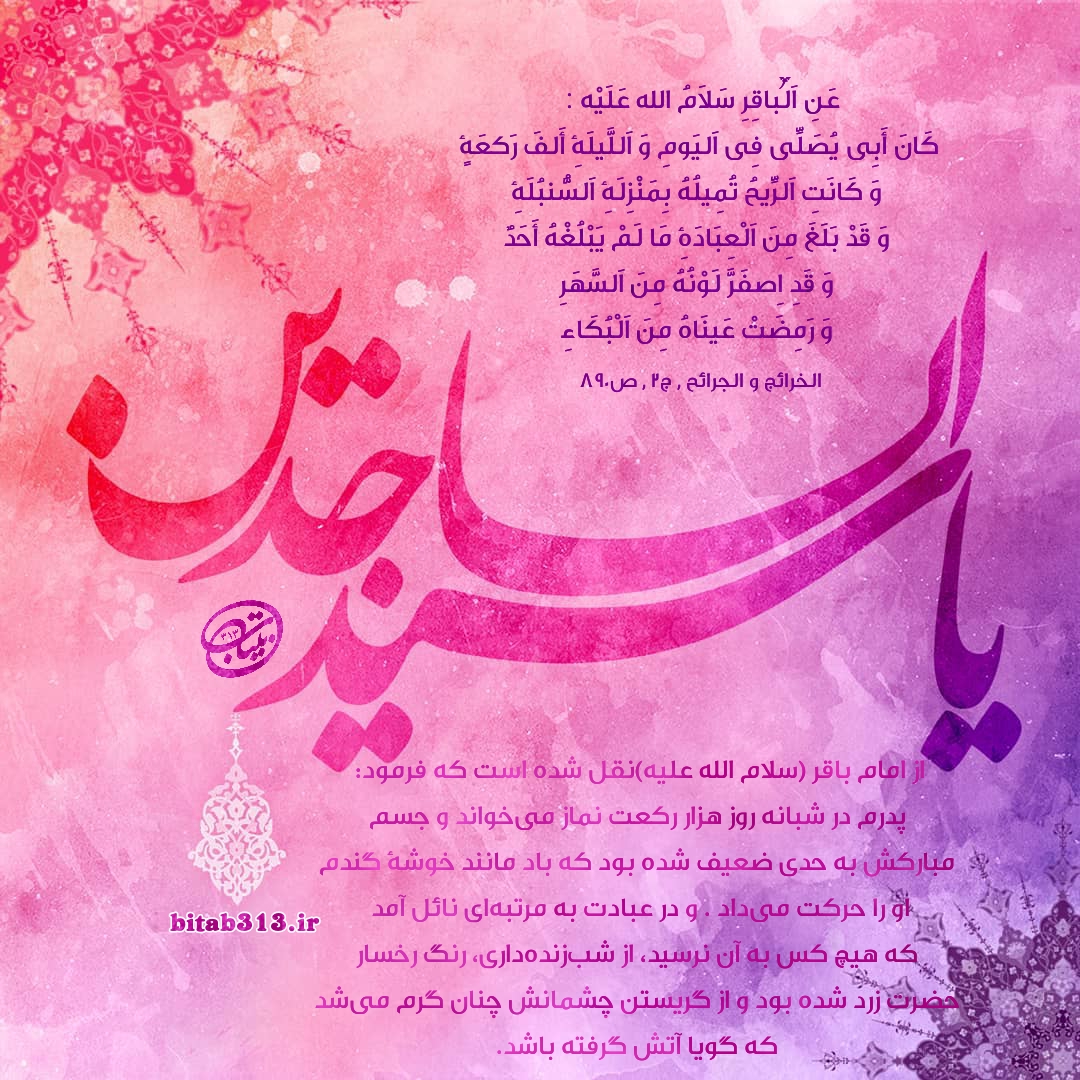 عَنِ اَلْباقِرِ سَلاَمُ الله عَلَيْه :
كَانَ أَبِی يُصَلِّی فِی اَليَومِ وَ اَللَّيلَهِٔ أَلفَ رَكعَهٍٔ
وَ كَانَتِ اَلرِّيحُ تُمِيلُهُ بِمَنْزِلَهِٔ اَلسُّنبُلَهِٔ
وَ قَدْ بَلَغَ مِنَ اَلْعِبَادَهِٔ مَا لَمْ يَبْلُغْهُ أَحَدٌ
وَ قَدِ اِصفَرَّ لَوْنُهُ مِنَ اَلسَّهَرِ
وَ رَمِضَتْ عَينَاهُ مِنَ اَلْبُكَاءِ
الخرائج و الجرائح , ج۲ , ص۸۹۰
یا سید الساجدین
بیتاب ۳۱۳
از امام باقر (سلام الله علیه)نقل شده است که فرمود:
پدرم در شبانه روز هزار رکعت نماز می‌خواند و جسم
مبارکش به حدی ضعیف شده بود که باد مانند خوشهٔ گندم
او را حرکت می‌داد . و در عبادت به مرتبه‌ای نائل آمد
که هیچ کس به آن نرسید، از شب‌زنده‌داری، رنگ رخسار
حضرت زرد شده بود و از گریستن چشمانش چنان گرم می‌شد
که گویا آتش گرفته باشد.
bitab313.ir